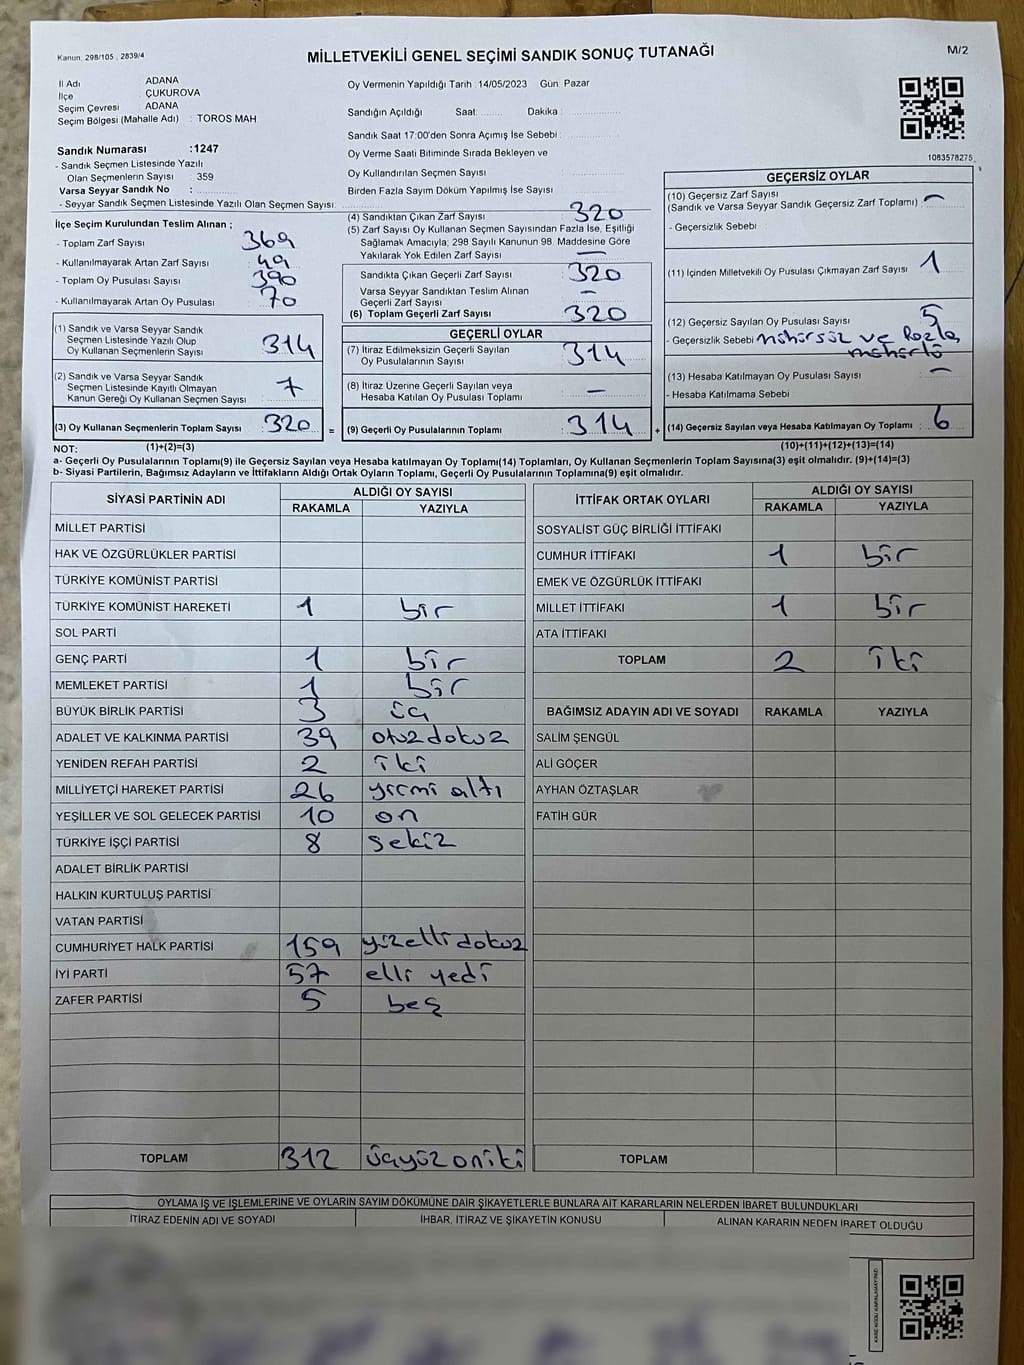 Kanun, 298/105 , 2839/4
MİLLETVEKİLİ GENEL SEÇİMİ SANDIK SONUÇ TUTANAĞI
M/2
İl Adı ADANA
İlçe ÇUKUROVA
Seçim Çevresi ADANA
Seçim Bölgesi (Mahalle Adı) : TOROS MAH
Sandık Numarası :1247
- Sandık Seçmen Listesinde Yazılı
Olan Seçmenlerin Sayısı 359
Varsa Seyyar Sandık No :
- Seyyar Sandık Seçmen Listesinde Yazılı Olan Seçmen Sayısı:
Oy Vermenin Yapıldığı Tarih : 14/05/2023 Gün: Pazar
Sandığın Açıldığı Saat: Dakika :
Sandık Saat 17:00'den Sonra Açımış İse Sebebi :
Oy Verme Saati Bitiminde Sırada Bekleyen ve
Oy Kullandırılan Seçmen Sayısı
Birden Fazla Sayım Döküm Yapılmış İse Sayısı :
1083578275
İlçe Seçim Kurulundan Teslim Alınan ;
- Toplam Zarf Sayısı 369
- Kullanılmayarak Artan Zarf Sayısı : 49
- Toplam Oy Pusulası Sayısı : 390
- Kullanılmayarak Artan Oy Pusulası : 70
(1) Sandık ve Varsa Seyyar Sandık
Seçmen Listesinde Yazılı Olup
Oy Kullanan Seçmenlerin Sayısı : 314
(2) Sandık ve Varsa Seyyar Sandık
Seçmen Listesinde Kayıtlı Olmayan
Kanun Gereği Oy Kullanan Seçmen Sayısı : 7
(3) Oy Kullanan Seçmenlerin Toplam Sayısı : 320 =
(4) Sandıktan Çıkan Zarf Sayısı : 320
(5) Zarf Sayısı Oy Kullanan Seçmen Sayısından Fazla İse, Eşitliği
Sağlamak Amacıyla; 298 Sayılı Kanunun 98. Maddesine Göre
Yakılarak Yok Edilen Zarf Sayısı : —
Sandıkta Çıkan Geçerli Zarf Sayısı : 320
Varsa Seyyar Sandıktan Teslim Alınan
Geçerli Zarf Sayısı : —
(6) Toplam Geçerli Zarf Sayısı : 320
GEÇERLİ OYLAR
(7) İtiraz Edilmeksizin Geçerli Sayılan
Oy Pusulalarının Sayısı : 314
(8) İtiraz Üzerine Geçerli Sayılan veya
Hesaba Katılan Oy Pusulası Toplamı : —
(9) Geçerli Oy Pusulalarının Toplamı : 314 +
GEÇERSİZ OYLAR
(10) Geçersiz Zarf Sayısı
(Sandık ve Varsa Seyyar Sandık Geçersiz Zarf Toplamı) : —
- Geçersizlik Sebebi :
(11) İçinden Milletvekili Oy Pusulası Çıkmayan Zarf Sayısı : 1
(12) Geçersiz Sayılan Oy Pusulası Sayısı : 5
- Geçersizlik Sebebi mühürsüz ve fazla
mühürlü
(13) Hesaba Katılmayan Oy Pusulası Sayısı : —
- Hesaba Katılmama Sebebi :
(14) Geçersiz Sayılan veya Hesaba Katılmayan Oy Toplamı : 6
NOT: (1)+(2)=(3) (10)+(11)+(12)+(13)=(14)
a- Geçerli Oy Pusulalarının Toplamı(9) ile Geçersiz Sayılan veya Hesaba katılmayan Oy Toplamı(14) Toplamları, Oy Kullanan Seçmenlerin Toplam Sayısına(3) eşit olmalıdır. (9)+(14)=(3)
b- Siyasi Partilerin, Bağımsız Adayların ve İttifakların Aldığı Ortak Oyların Toplamı, Geçerli Oy Pusulalarının Toplamına(9) eşit olmalıdır.
SİYASİ PARTİNİN ADI ALDIĞI OY SAYISI
RAKAMLA YAZIYLA
MİLLET PARTİSİ
HAK VE ÖZGÜRLÜKLER PARTİSİ
TÜRKİYE KOMÜNİST PARTİSİ
TÜRKİYE KOMÜNİST HAREKETİ 1 bir
SOL PARTİ
GENÇ PARTİ 1 bir
MEMLEKET PARTİSİ 1 bir
BÜYÜK BİRLİK PARTİSİ 3 üç
ADALET VE KALKINMA PARTİSİ 39 otuzdokuz
YENİDEN REFAH PARTİSİ 2 iki
MİLLİYETÇİ HAREKET PARTİSİ 26 yirmi altı
YEŞİLLER VE SOL GELECEK PARTİSİ 10 on
TÜRKİYE İŞÇİ PARTİSİ 8 sekiz
ADALET BİRLİK PARTİSİ
HALKIN KURTULUŞ PARTİSİ
VATAN PARTİSİ
CUMHURİYET HALK PARTİSİ 159 yüzellidokuz
İYİ PARTİ 57 elli yedi
ZAFER PARTİSİ 5 beş
TOPLAM 312 üçyüzoniki
İTTİFAK ORTAK OYLARI ALDIĞI OY SAYISI
RAKAMLA YAZIYLA
SOSYALİST GÜÇ BİRLİĞİ İTTİFAKI
CUMHUR İTTİFAKI 1 bir
EMEK VE ÖZGÜRLÜK İTTİFAKI
MİLLET İTTİFAKI 1 bir
ATA İTTİFAKI
TOPLAM 2 iki
BAĞIMSIZ ADAYIN ADI VE SOYADI RAKAMLA YAZIYLA
SALİM ŞENGÜL
ALİ GÖÇER
AYHAN ÖZTAŞLAR
FATİH GÜR
TOPLAM
OYLAMA İŞ VE İŞLEMLERİNE VE OYLARIN SAYIM DÖKÜMÜNE DAİR ŞİKAYETLERLE BUNLARA AİT KARARLARIN NELERDEN İBARET BULUNDUKLARI
İTİRAZ EDENİN ADI VE SOYADI İHBAR, İTİRAZ VE ŞİKAYETİN KONUSU ALINAN KARARIN NEDEN İBARET OLDUĞU